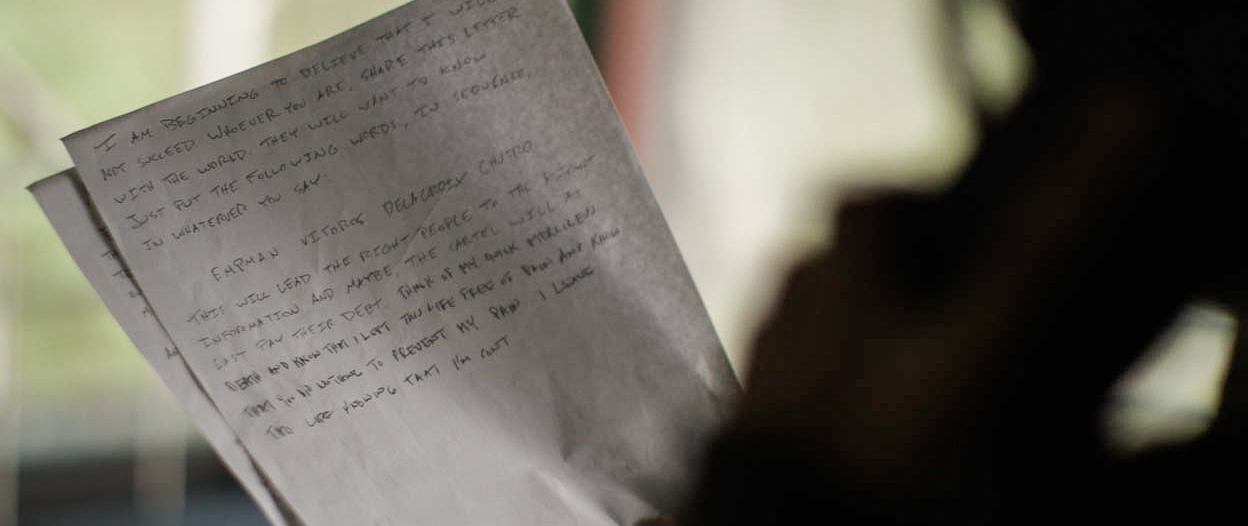 I AM BEGINNING TO BELIEVE THAT I WILL
NOT SUCCEED. WHOEVER YOU ARE, SHARE THIS LETTER
WITH THE WORLD. THEY WILL WANT TO KNOW
JUST PUT THE FOLLOWING WORDS, IN SEQUENCE,
IN WHATEVER YOU SAY.
EMPMAN DELACROIX
THIS WILL LEAD THE RIGHT PEOPLE TO THE RIGHT
INFORMATION AND MAYBE, THE CARTEL WILL AT
LAST PAY THEIR DEBT. THINK OF MY QUICK MERCILESS
DEATH AND KNOW THAT I LEFT THIS LIFE FREE OF PAIN AND KNOW
THAT YOU DID NOTHING TO PREVENT MY PAIN I LEAVE
THIS LIFE KNOWING THAT I'M